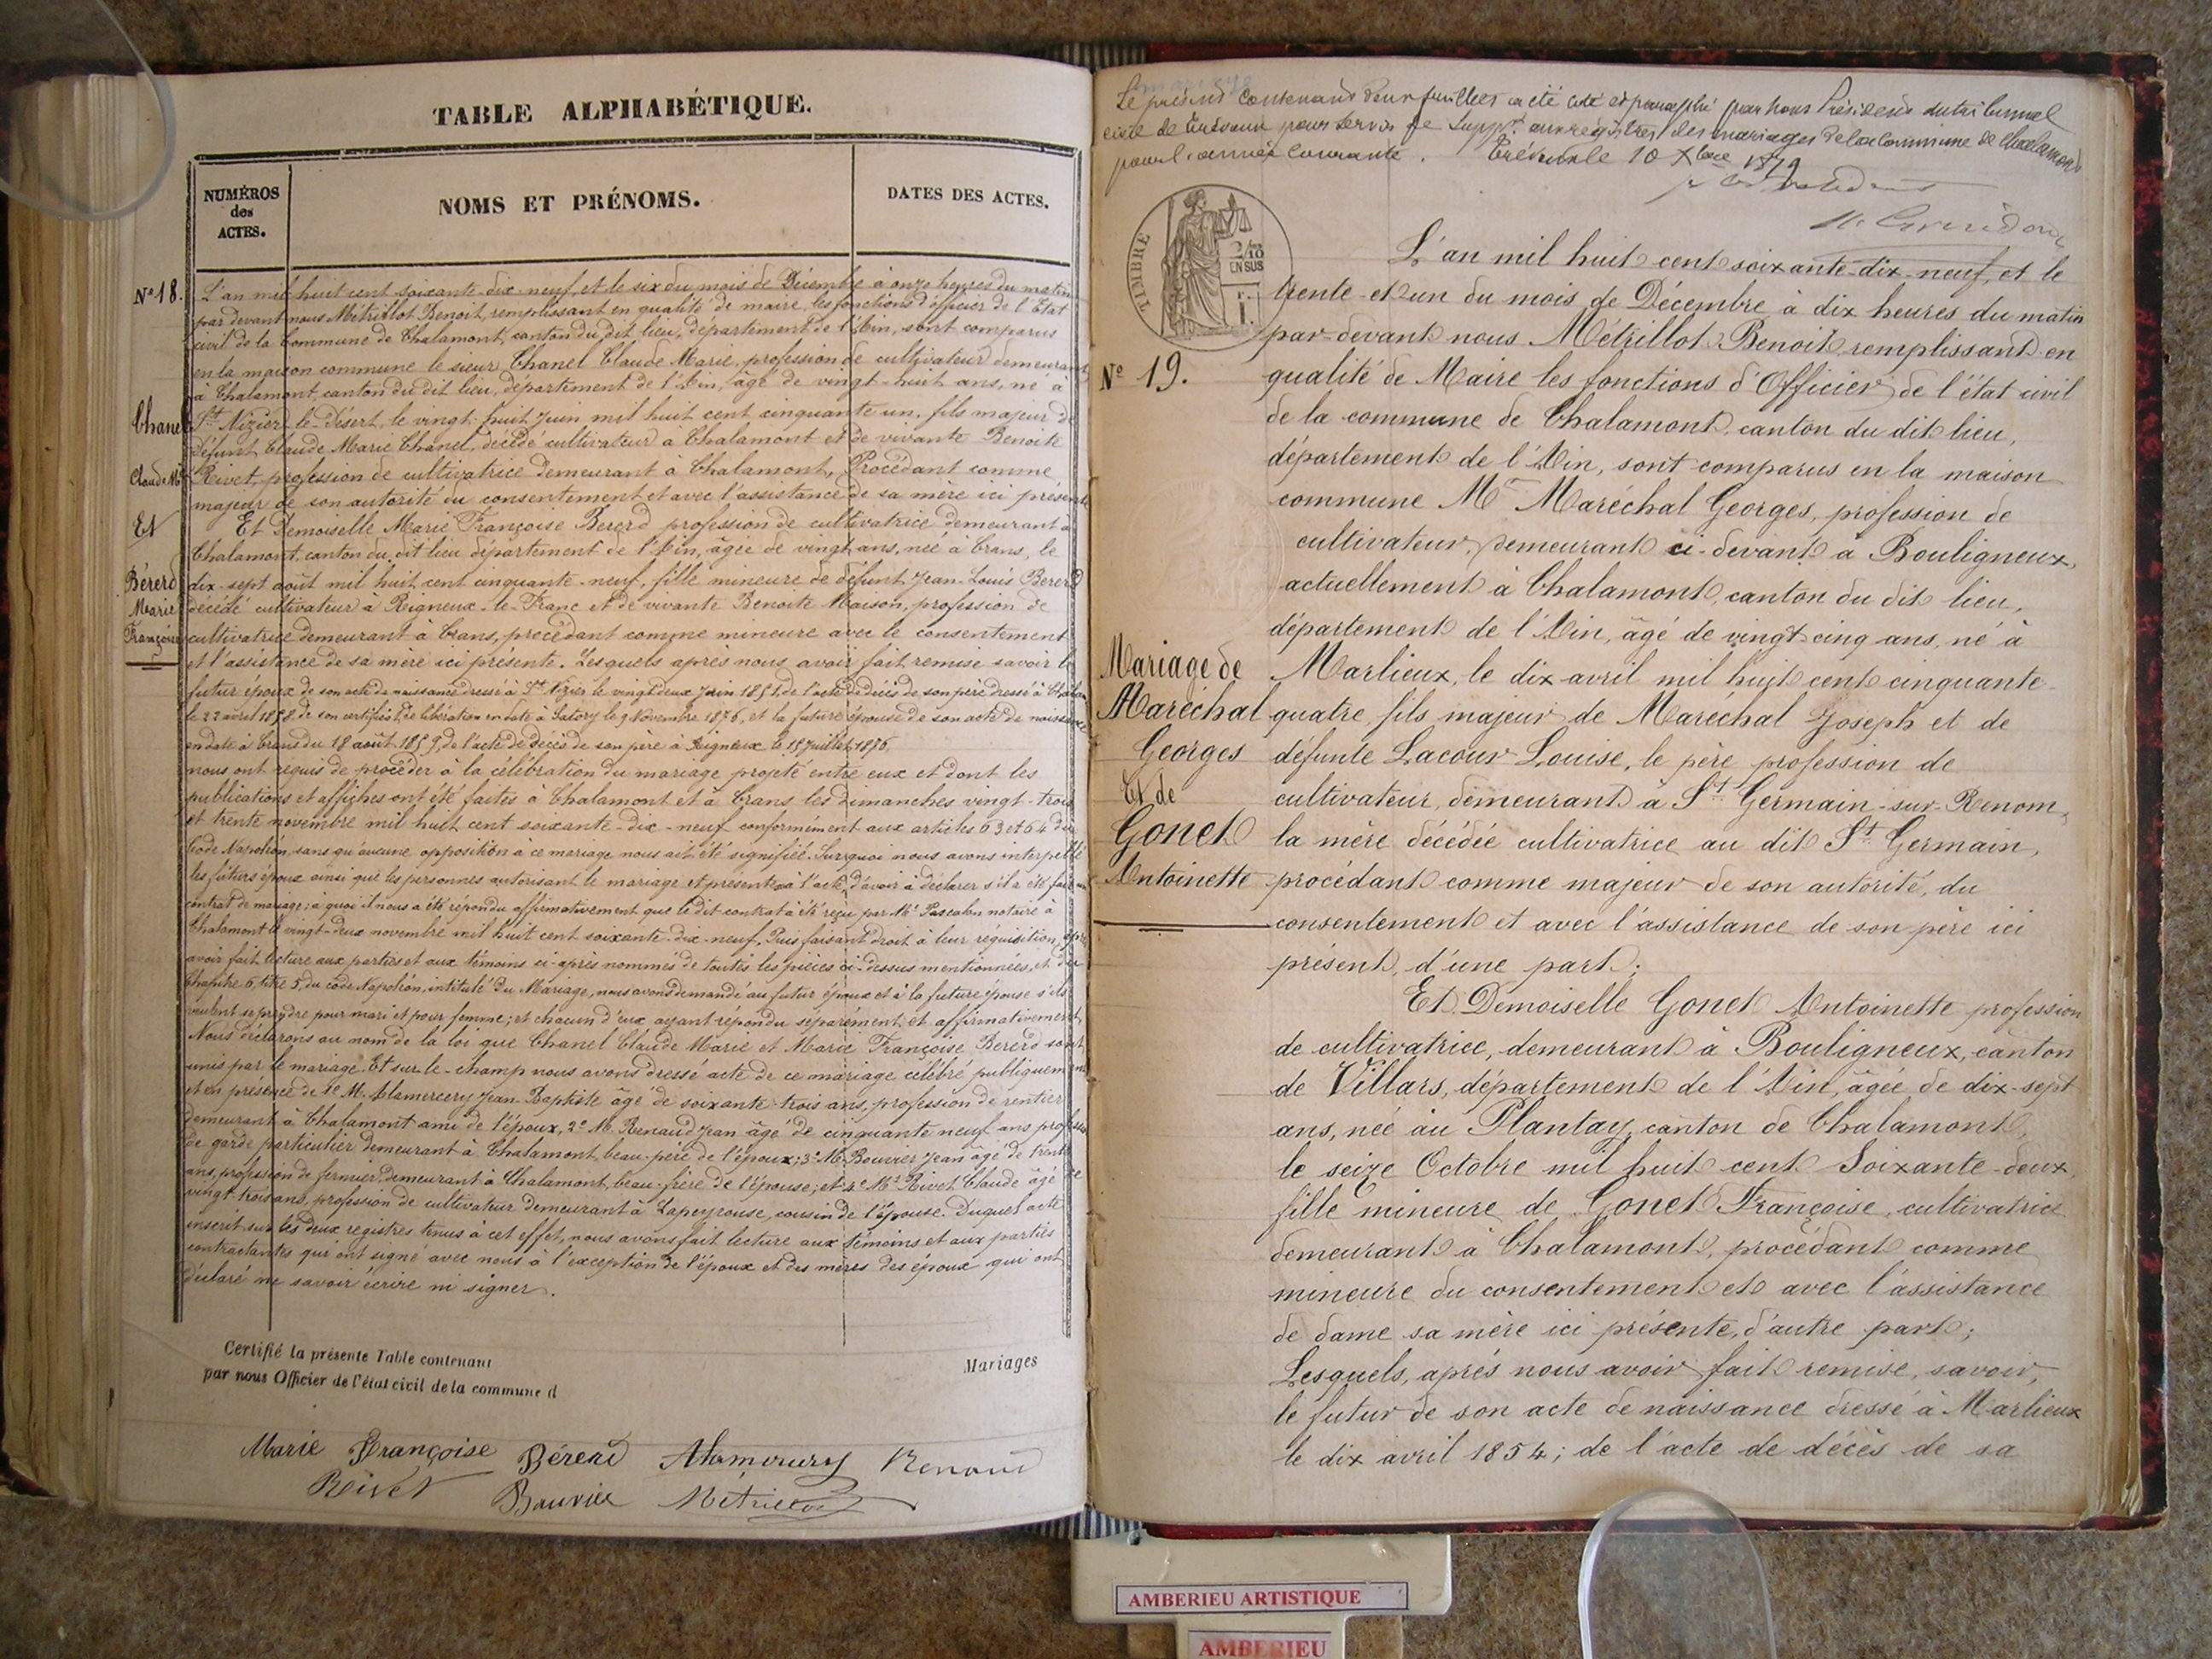 TABLE ALPHABÉTIQUE.
NUMÉROS
des
ACTES.
NOMS ET PRÉNOMS.
DATES DES ACTES.
N° 18.
Chanel
Claude Mie
Et
Bérerd
Marie
Françoise
L'an mil huit cent soixante-dix-neuf, et le six du mois de Décembre à onze heures du matin
par devant nous Métrillot Benoit, remplissant en qualité de maire, les fonctions d'officier de l'Etat
civil de la Commune de Chalamont, canton du dit lieu, département de l'Ain, sont comparus
en la maison commune le sieur Chanel Claude Marie, profession de cultivateur demeurant
à Chalamont, canton du dit lieu, département de l'Ain, âgé de vingt-huit ans, né à
St Nizier-le-Désert, le vingt-huit Juin mil huit cent cinquante un, fils majeur de
défunt Claude Marie Chanel, décédé cultivateur à Chalamont et de vivante Benoite
Rivet, profession de cultivatrice demeurant à Chalamont, Procédant comme
majeur de son autorité du consentement et avec l'assistance de sa mère ici présente
Et Demoiselle Marie Françoise Bererd profession de cultivatrice demeurant à
Chalamont, canton du dit lieu département de l'Ain, âgée de vingt ans, née à Crans, le
dix-sept août mil huit cent cinquante-neuf, fille mineure de défunt Jean-Louis Bererd
décédé cultivateur à Rigneux-le-Franc et de vivante Benoite Maison, profession de
cultivatrice demeurant à Crans, procédant comme mineure avec le consentement
et l'assistance de sa mère ici présente. Lesquels après nous avoir fait remise savoir le
futur époux de son acte de naissance dressé à St Nizier le vingt deux Juin 1851, de l'acte de décès de son père dressé à
le 22 avril 1858, de son certificat de libération en date à Satory le 9 Novembre 1876, et la future épouse de son acte de naissance
en date à Crans du 18 août 1859, de l'acte de décès de son père à Rigneux le 15 Juillet 1876
nous ont requis de procéder à la célébration du mariage projeté entre eux et dont les
publications et affiches ont été faites à Chalamont et à Crans les dimanches vingt-trois
et trente novembre mil huit cent soixante-dix-neuf conformément aux articles 63 et 64 du
Code Napoléon, sans qu'aucune opposition à ce mariage nous ait été signifiée. Sur quoi nous avons interpellé
les futurs époux ainsi que les personnes autorisant le mariage et présentes à l'acte, d'avoir à déclarer s'il a été fait un
contrat de mariage; à quoi il nous a été répondu affirmativement que le dit contrat a été reçu par Me Pascalon notaire à
Chalamont le vingt-deux novembre mil huit cent soixante-dix-neuf, Puis faisant droit à leur réquisition, après
avoir fait lecture aux parties et aux témoins ci-après nommés de toutes les pièces ci-dessus mentionnées, et du
Chapitre 6 titre 5, du code Napoléon, intitulé Du Mariage, nous avons demandé au futur époux et à la future épouse s'ils
veulent se prendre pour mari et pour femme; et chacun d'eux ayant répondu séparément et affirmativement
Nous déclarons au nom de la loi que Chanel Claude Marie et Marie Françoise Bererd sont
unis par le mariage. Et sur-le-champ nous avons dressé acte de ce mariage célébré publiquement
et en présence de 1° M. Alamercery Jean-Baptiste âgé de soixante-trois ans, profession de rentier
demeurant à Chalamont ami de l'époux, 2° M. Renaud Jean âgé de cinquante neuf ans profession
de garde particulier demeurant à Chalamont beau-père de l'époux; 3° M. Bouvier Jean âgé de trente
ans, profession de fermier demeurant à Chalamont, beau-frère de l'épouse; et 4° M. Rivet Claude âgé de
vingt-trois ans, profession de cultivateur demeurant à Lapeyrouse, cousin de l'épouse. Duquel acte
inscrit sur les deux registres tenus à cet effet, nous avons fait lecture aux témoins et aux parties
contractantes qui ont signé avec nous à l'exception de l'époux et des mères des époux qui ont
déclaré ne savoir écrire ni signer.
Certifié la présente Table contenant
Mariages
par nous Officier de l'état civil de la commune d
Marie Françoise Bérerd Alamercery Renaud
Rivet Bouvier Métrillot
Le présent contenant deux feuillets a été coté et paraphé par nous Président du tribunal
civil de Trévoux pour servir de Suppt aux registres des mariages de la commune de Chalamont
pour l'année courante. Trévoux le 10 Xbre 1879
TIMBRE
2/10
EN SUS
N° 19.
Mariage de
Maréchal
Georges
Et de
Gonet
Antoinette
L'an mil huit cent soixante-dix-neuf, et le
trente-et-un du mois de Décembre à dix heures du matin
par-devant nous Métrillot Benoit remplissant en
qualité de Maire les fonctions d'Officier de l'état civil
de la commune de Chalamont, canton du dit lieu,
département de l'Ain, sont comparus en la maison
commune Mr Maréchal Georges, profession de
cultivateur, demeurant ci-devant à Bouligneux,
actuellement à Chalamont, canton du dit lieu,
département de l'Ain, âgé de vingt-cinq ans, né à
Marlieux, le dix avril mil huit cent cinquante-
quatre, fils majeur de Maréchal Joseph et de
défunte Lacour Louise, le père profession de
cultivateur, demeurant à St Germain-sur-Renom,
la mère décédée cultivatrice au dit St Germain,
procédant comme majeur de son autorité, du
consentement et avec l'assistance de son père ici
présent, d'une part;
Et Demoiselle Gonet Antoinette profession
de cultivatrice, demeurant à Bouligneux, canton
de Villars, département de l'Ain, âgée de dix-sept
ans, née au Plantay, canton de Chalamont,
le seize Octobre mil huit cent Soixante-deux,
fille mineure de Gonet Françoise, cultivatrice
demeurant à Chalamont, procédant comme
mineure du consentement et avec l'assistance
de dame sa mère ici présente, d'autre part;
Lesquels, après nous avoir fait remise, savoir,
le futur de son acte de naissance dressé à Marlieux
le dix avril 1854; de l'acte de décès de sa
AMBERIEU ARTISTIQUE
AMBERIEU